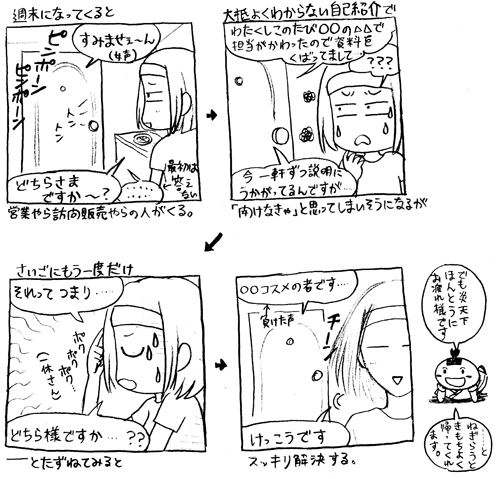 週末になってくると
ピンポーン
ピンポーン
すみませぇ〜ん
(女声)
トン
トン
最初は
答え
ない
どちらさま
ですか〜?
営業やら訪問販売やらの人がくる。
大抵よくわからない自己紹介で
わたくしこのたび〇〇の△△で
担当がかわったので資料を
くばってまして…
???
今一軒ずつ説明に
うかがってるんですが…
「開けなきゃ」と思ってしまいそうになるが
さいごにもう一度だけ
それってつまり……
ポク
ポク
ポク
(一休さん)
どちら様ですか…??
——とたずねてみると
〇〇コスメの者です…
↑負けた声
チーン
けっこうです
スッキリ解決する。
でも炎天下
ほんとうに
お疲れ様です
…と
ねぎらうと
きもちよく
帰ってくれ
ます。